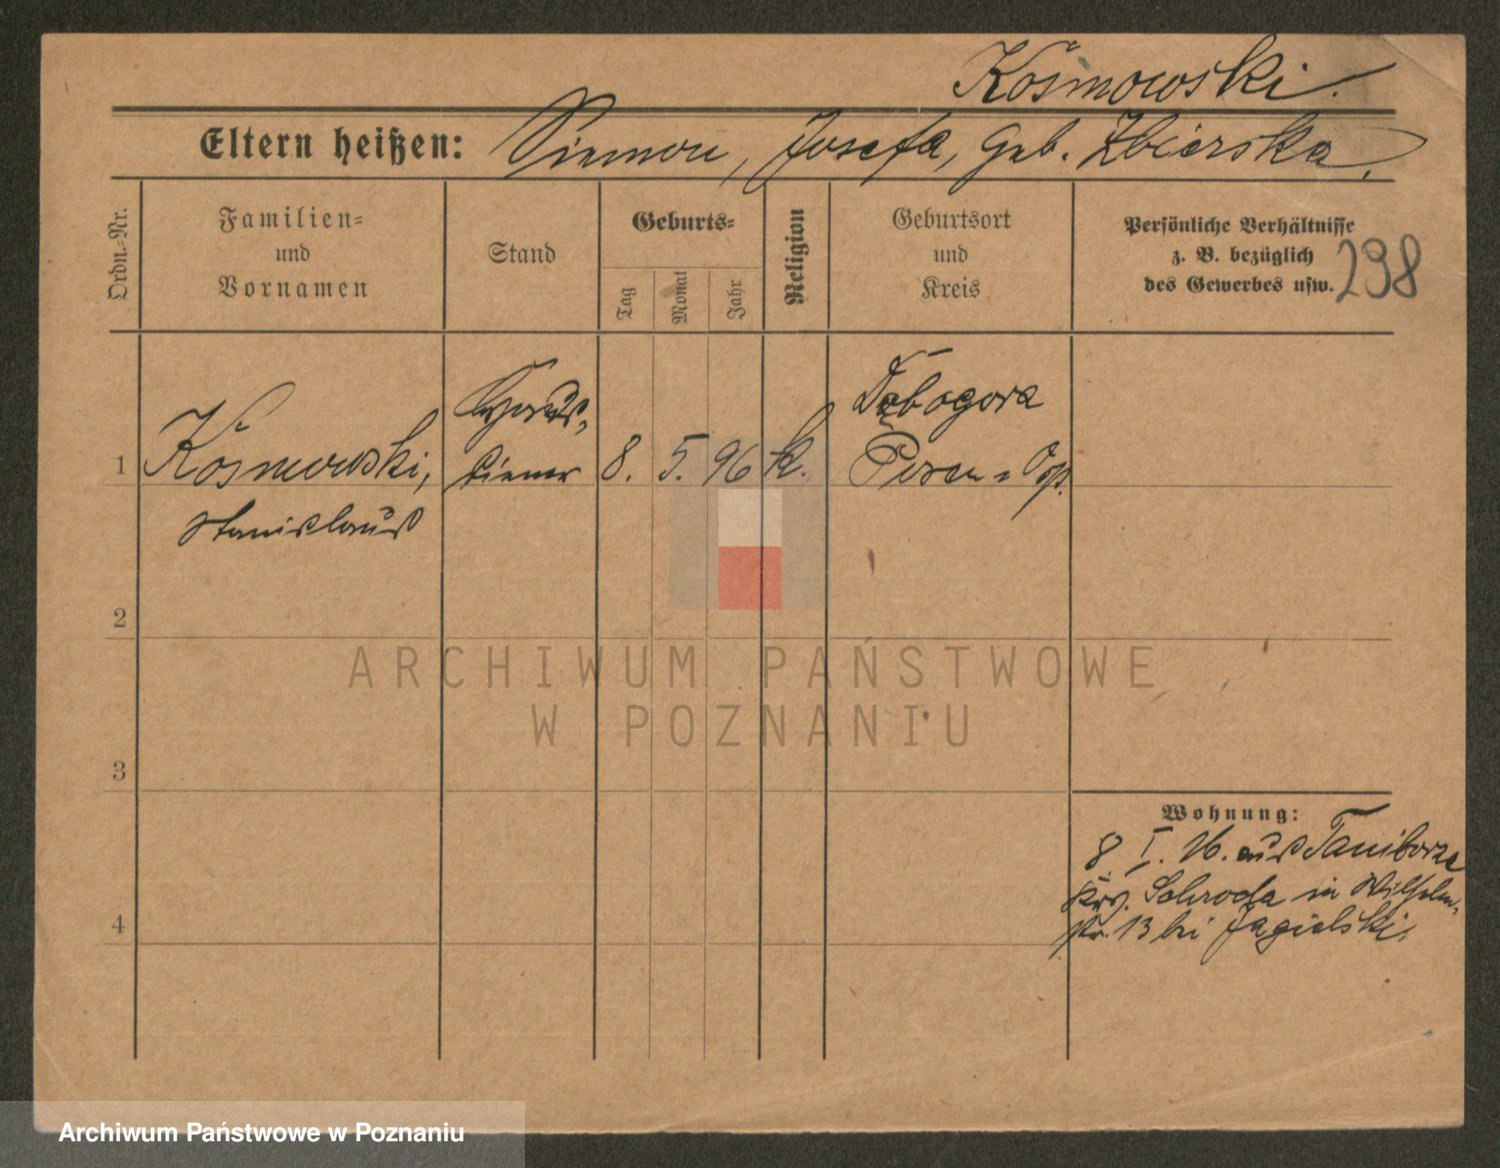 Kośmowski.
Eltern heißen: Simon, Josefa, geb. Zbierska.
Ordn.-Nr.
Familien-
und
Vornamen
Stand
Geburts-
Tag
Monat
Jahr
Religion
Geburtsort
und
Kreis
Persönliche Verhältnisse
z. B. bezüglich
des Gewerbes usw.
298
1
Kośmowski,
Stanislaus
diener
8. 5. 96
k.
Dębogora
Posen - Ost.
2
3
4
Wohnung:
8. I. 16. aus Taniborze
Krs. Schroda in Wilhelm-
str. 13 bei Jagielski.
ARCHIWUM PAŃSTWOWE
W POZNANIU
Archiwum Państwowe w Poznaniu